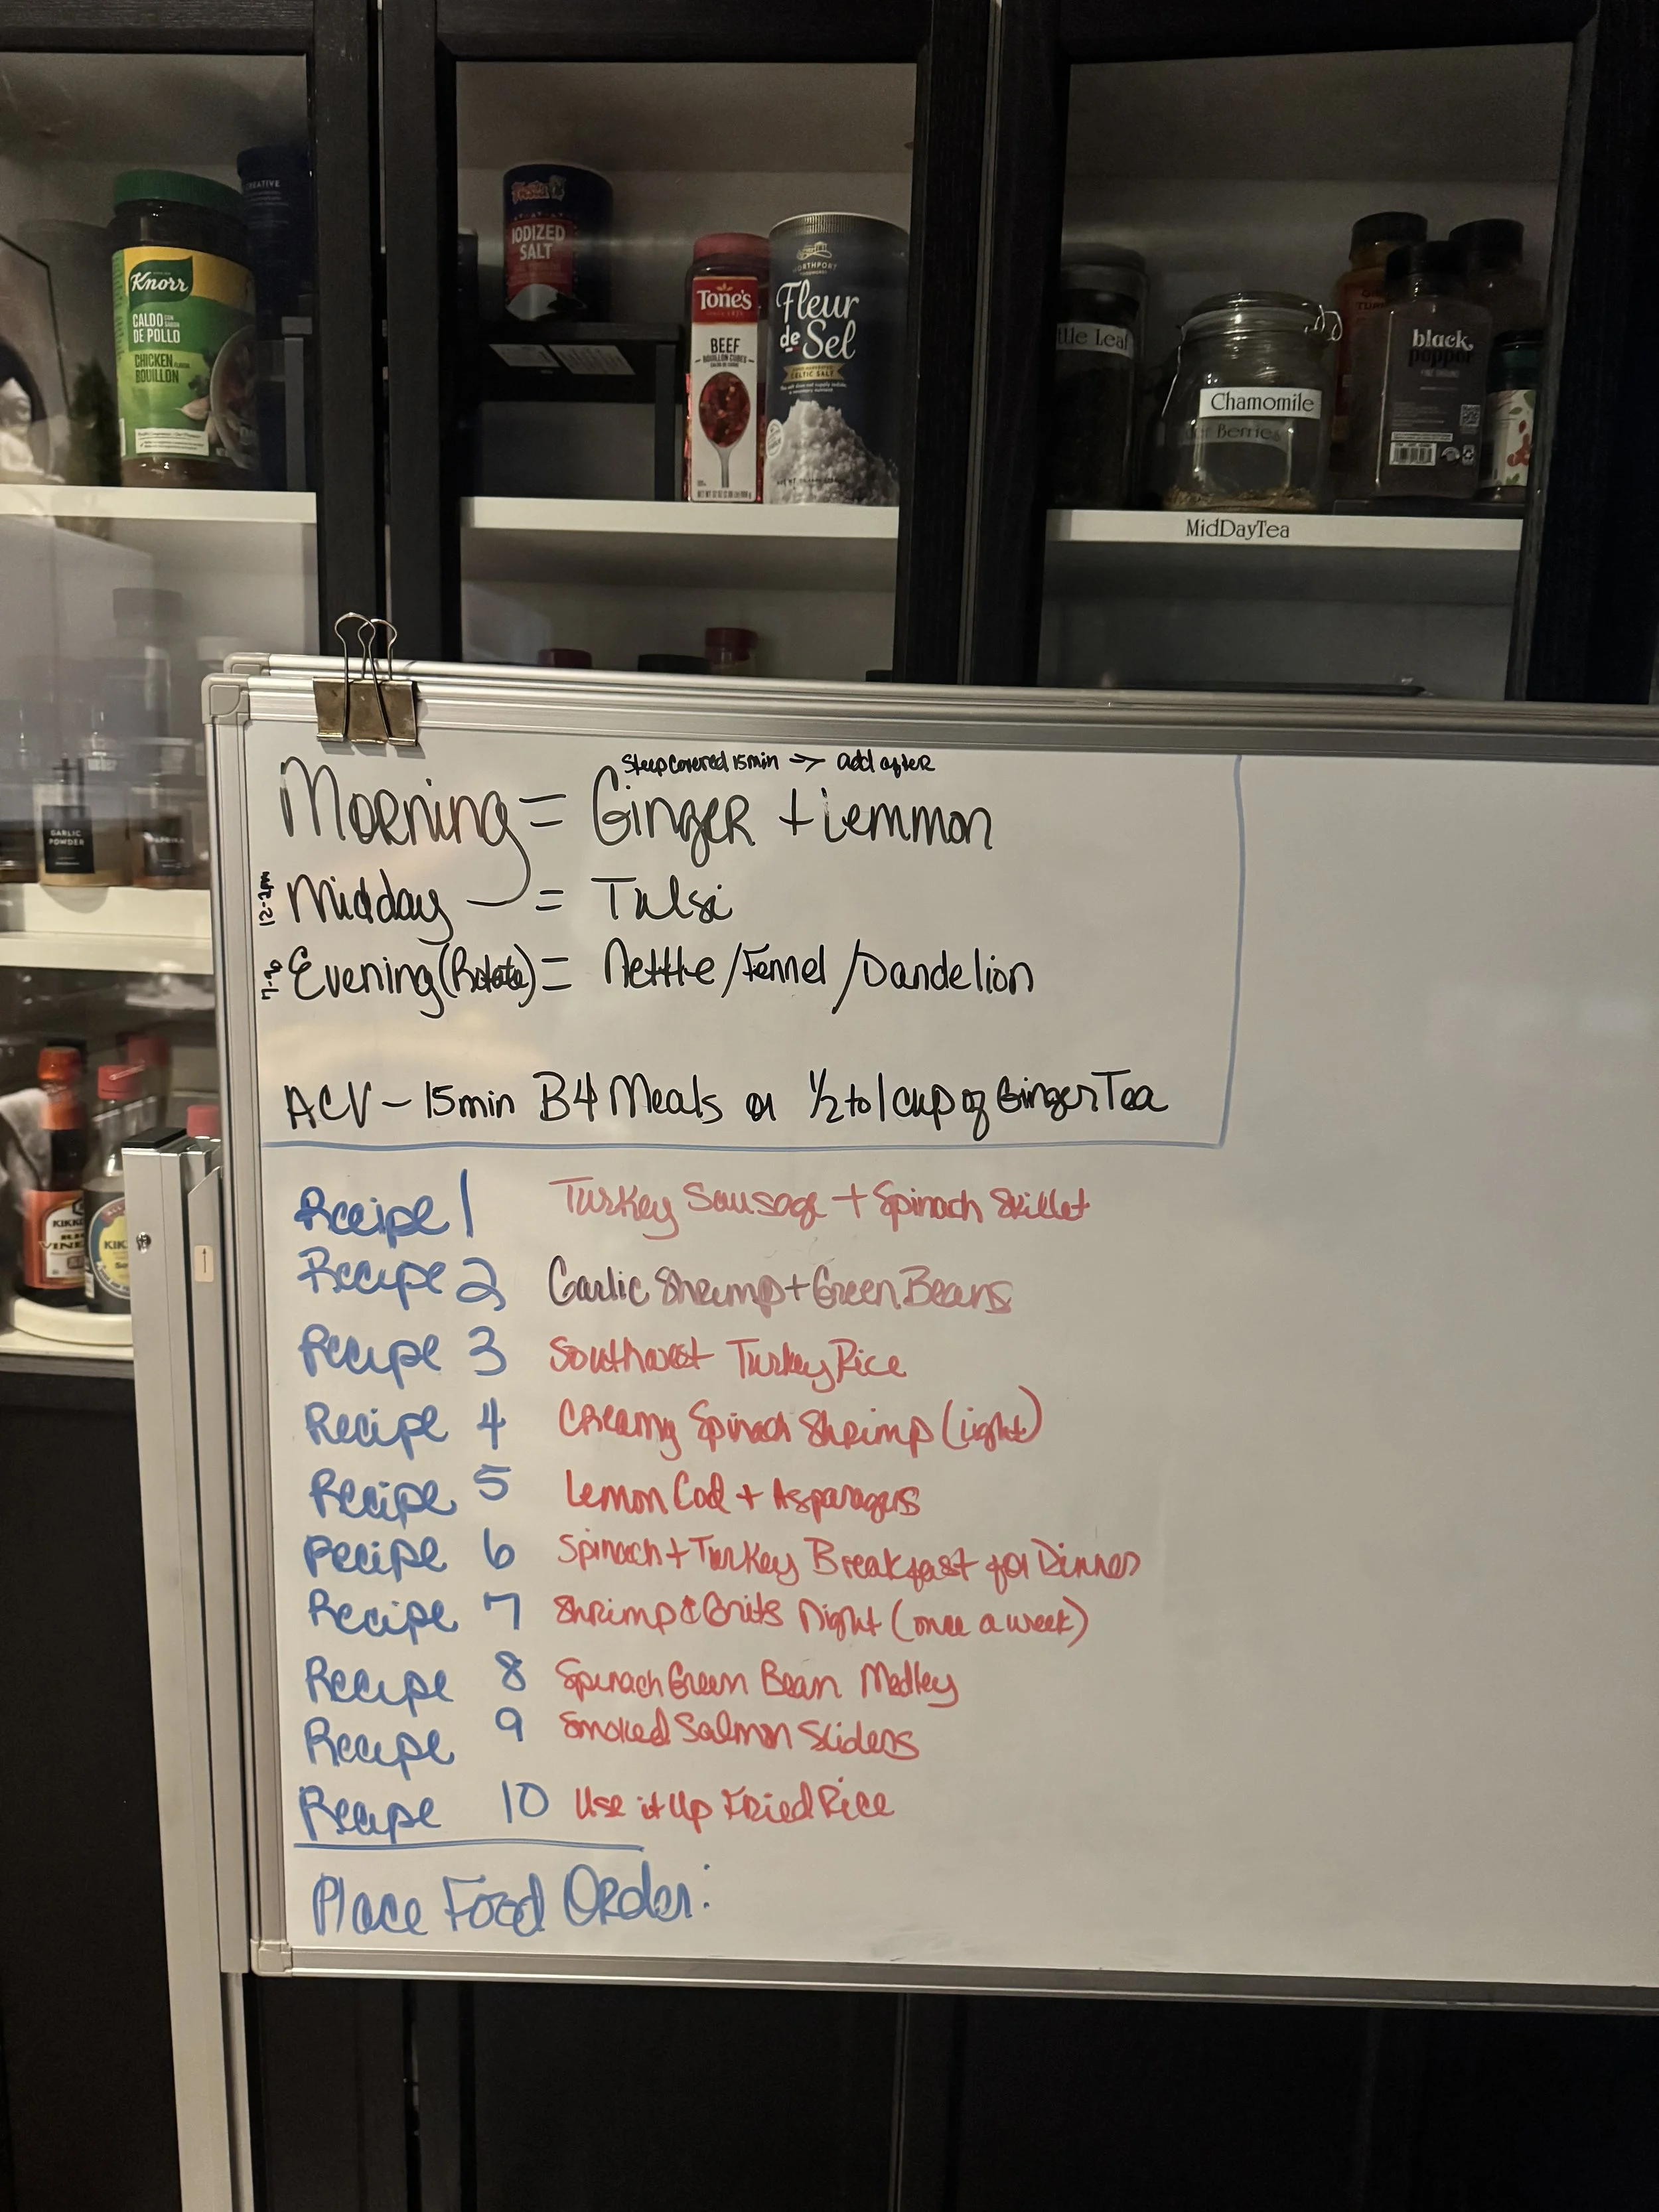 CREATIVE
Knorr
CALDO CON SABOR DE POLLO
CHICKEN FLAVOR BOUILLON
Fiesta
IODIZED SALT
TONE'S
BEEF
BOUILLON CUBES
NORTHPORT
Fleur de Sel
CELTIC SALT
ttle Leaf
Chamomile
Berries
black pepper
FINE GROUND
MidDayTea
GARLIC POWDER
PAPRIKA
Steep Covered 15min -> add after
Morning = Ginger + Lemmon
12-2pm Midday = Tulsi
Evening (Rotate) = Nettle / Fennel / Dandelion
ACV - 15min B4 Meals or 1/2 to 1 cup of Ginger Tea
Recipe 1 Turkey Sausage + Spinach Skillet
Recipe 2 Garlic Shrimp + Green Beans
Recipe 3 Southwest Turkey Rice
Recipe 4 Creamy Spinach Shrimp (Light)
Recipe 5 Lemon Cod + Asparagus
Recipe 6 Spinach + Turkey Breakfast for Dinner
Recipe 7 Shrimp & Grits Night (once a week)
Recipe 8 Spinach Green Bean Medley
Recipe 9 Smoked Salmon Sliders
Recipe 10 Use it Up Fried Rice
Place Food Order:
KIKK
VINE
KIK